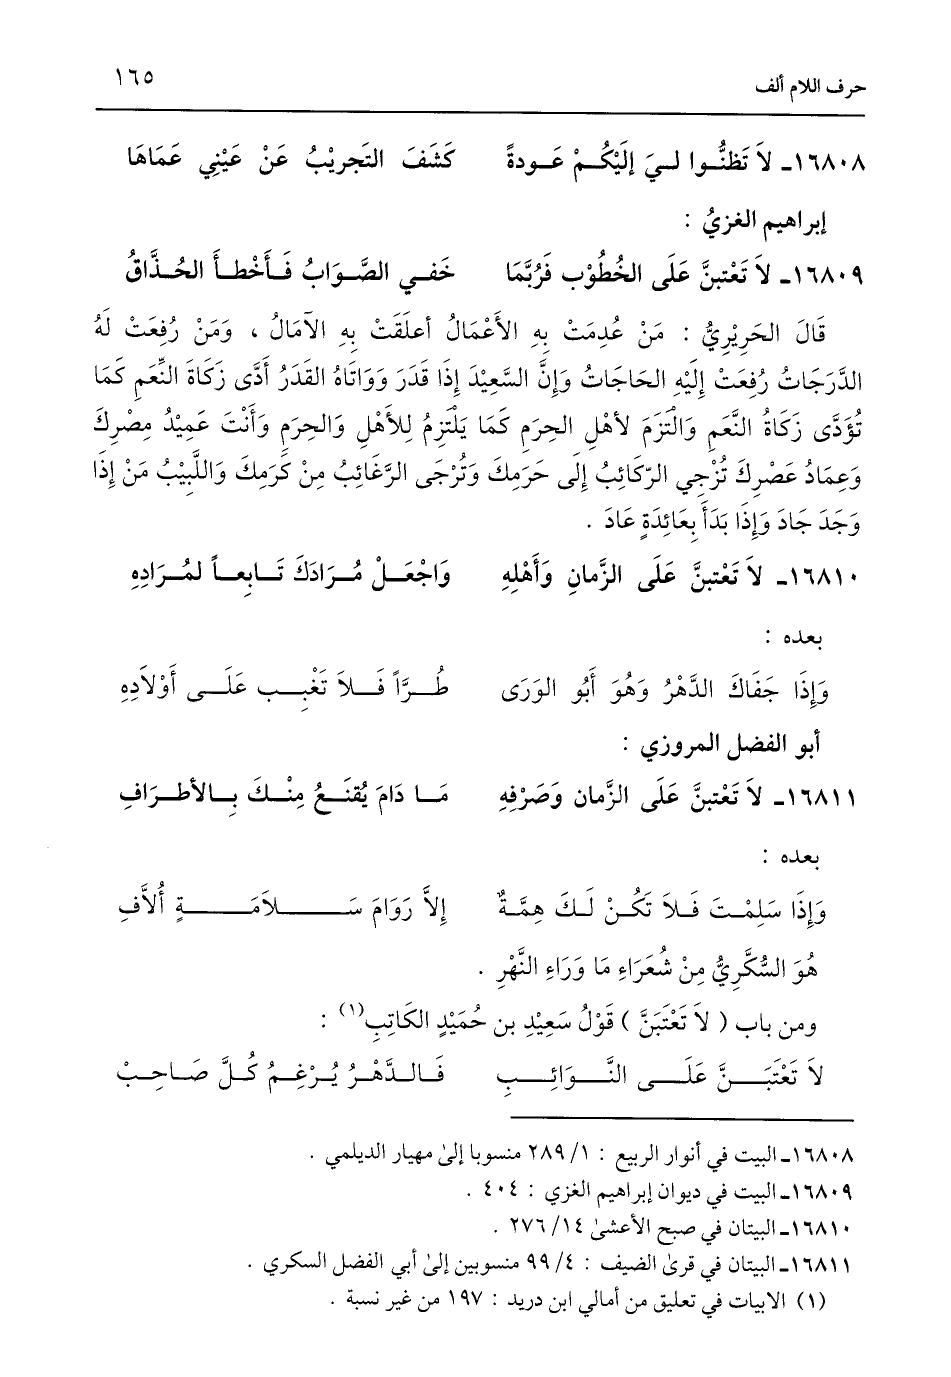 حرف اللام ألف ١٦٥
١٦٨٠٨ـ لاَ تَظنُّوا لـيَ إلَيْكُـمْ عَـودةً كَشَفَ التَجريْبُ عَنْ عَيْنِي عَمَاهَا
إبراهيم الغزيُ :
١٦٨٠٩ـ لاَ تَعْتبنَّ عَلَى الخُطُوْبِ فَرُبَّمَا خَفـي الصَّوَابُ فَـأخْطـأَ الحُـذَّاقُ
قَالَ الحَرِيْرِيُّ : مَنْ عُدِمَتْ بِهِ الأَعْمَالُ أعلَقَتْ بِهِ الآمَالُ ، وَمَنْ رُفِعَتْ لَهُ
الدَّرَجَاتُ رُفِعَتْ إِلَيْهِ الحَاجَاتُ وَإِنَّ السَّعِيْدَ إِذَا قدَرَ وَوَاتَاهُ القَدَرُ أَدَّى زَكَاةَ النِّعَمِ كَمَا
تُؤَدَّى زَكَاةُ النَّعَمِ وَالْتَزَمَ لأهْلِ الحِرَمِ كَمَا يَلْتَزِمُ لِلأَهْلِ وَالحِرَمِ وَأَنْتَ عَمِيْدُ مِصْرِكَ
وَعِمَادُ عَصْرِكَ تُزْجِي الرّكَائِبُ إِلَى حَرَمِكَ وَتُرْجَى الرَّغَائِبُ مِنْ كَرَمِكَ وَاللَّبِيْبُ مَنْ إِذَا
وَجَدَ جَادَ وَإِذَا بَدَأَ بِعَائِدَةٍ عَادَ .
١٦٨١٠ـ لاَ تَعْتبنَّ عَلَى الزَّمانِ وَأَهْلِهِ وَاجْعَـلْ مُـرَادَكَ تَـابِعـاً لمُـرَادِهِ
بعده :
وَإِذَا جَفَاكَ الدَّهْرُ وَهُوَ أَبُو الوَرَى طُـرَّاً فَـلاَ تَعْتِـب عَلَـى أَوْلاَدِهِ
أبو الفضل المروزي :
١٦٨١١ـ لاَ تَعْتبنَّ عَلَى الزَّمان وَصَرْفِهِ مَـا دَامَ يُقنَـعُ مِنْـكَ بِـالأطـرَافِ
بعده :
وَإِذَا سَلِمْـتَ فَـلاَ تَكُـنْ لَـكَ هِمَّـةٌ إِلاَّ رَوَامَ سَـلاَمَـةٍ أُلاَّفِ
هُوَ السُّكَّرِيُّ مِنْ شُعَرَاءِ مَا وَرَاءِ النَّهْرِ .
ومن باب ( لاَ تَعْتَبَنَّ ) قَوْلُ سَعِيْدِ بن حُمَيْدٍ الكَاتِبِ(١) :
لاَ تَعْتَبَـنَّ عَلَـى النَّـوَائِـبِ فَـالـدَّهْـرُ يُـرْغِـمُ كُـلَّ صَـاحِـبْ
١٦٨٠٨ـ البيت في أنوار الربيع : ١/ ٢٨٩ منسوبا إلىٰ مهيار الديلمي .
١٦٨٠٩ـ البيت في ديوان إبراهيم الغزي : ٤٠٤ .
١٦٨١٠ـ البيتان في صبح الأعشىٰ ١٤/ ٢٧٦ .
١٦٨١١ـ البيتان في قرىٰ الضيف : ٤/ ٩٩ منسوبين إلىٰ أبي الفضل السكري .
(١) الابيات في تعليق من أمالي ابن دريد : ١٩٧ من غير نسبة .